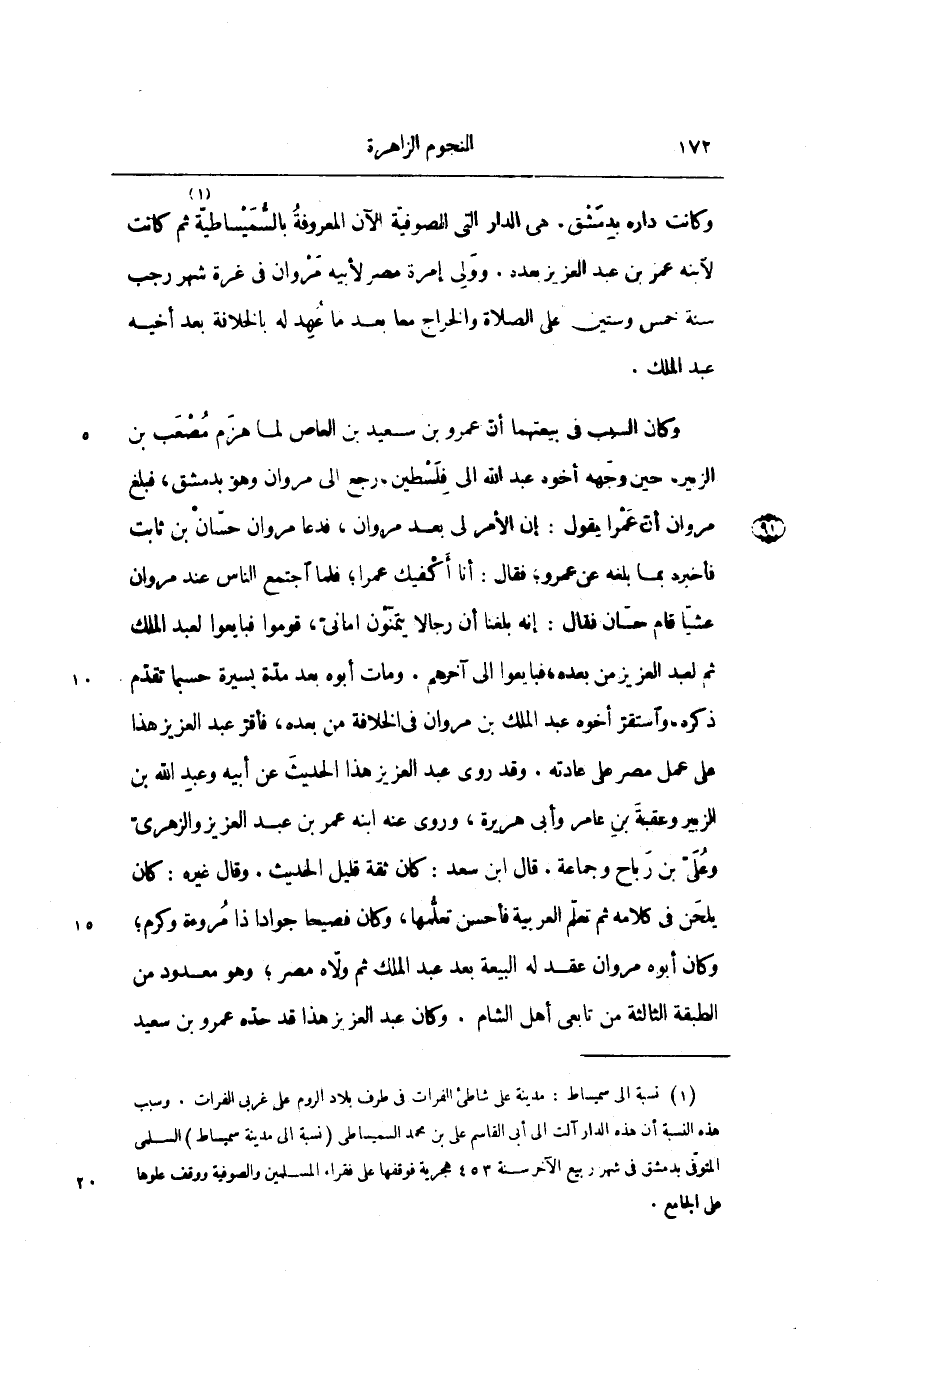 ١٧٢ النجوم الزاهرة
وكانت داره بدِمَشْق. هى الدار التى للصوفيّة الآن المعروفةُ بالسُّمَيْساطيّة (١) ثم كانت
لآبنه عمر بن عبد العزيز بعده . ووَلِى إمرة مصر لأبيه مَرْوان فى غرة شهر رجب
سنة خمس وستين على الصلاة والخراج معا بعد ما عُهِد له بالخلافة بعد أخيه
عبد الملك .
وكان السبب فى بيعتهما أنّ عمرو بن سعيد بن العاص لما هزَم مُصْعَب بن ٥
الزبير. حين وجّهه أخوه عبد الله الى فِلَسْطين. رجع الى مروان وهو بدمشق، فبلغ
مروان أنّ عَمْرا يقول : إن الأمر لى بعد مروان ، فدعا مروان حسّانَ بن ثابت ٩١
فأخبره بما بلغه عن عمرو؛ فقال : أنا أَكْفيك عمرا؛ فلما آجتمع الناس عند مروان
عشيّا قام حسّان فقال : إنه بلغنا أن رجالا يتمنَّوْن امانىّ، قوموا فبايعوا لعبد الملك
ثم لعبد العزيز من بعده، فبايعوا الى آخرهم . ومات أبوه بعد مدّة يسيرة حسبما تقدّم ١٠
ذكره. وآستقرّ أخوه عبد الملك بن مروان فى الخلافة من بعده، فأقرّ عبد العزيز هذا
على عمل مصر على عادته . وقد روى عبد العزيز هذا الحديثَ عن أبيه وعبدِ الله بن
الزبير وعقبةَ بنِ عامر وأبى هريرة ، وروى عنه ابنه عمر بن عبد العزيز والزهرىّ
وعُلَىّ بن رَباح وجماعة . قال ابن سعد : كان ثقة قليل الحديث . وقال غيره : كان
يلحَن فى كلامه ثم تعلّم العربية فأحسن تعلُّمها، وكان فصيحا جوادا ذا مُروءة وكرم؛ ١٥
وكان أبوه مروان عقد له البيعة بعد عبد الملك ثم ولّاه مصر ؛ وهو معدود من
الطبقة الثالثة من تابعى أهل الشام . وكان عبد العزيز هذا قد حدّه عمرو بن سعيد
(١) نسبة الى سميساط : مدينة على شاطئ الفرات فى طرف بلاد الروم على غربى الفرات . وسبب
هذه النسبة أن هذه الدار آلت الى أبى القاسم على بن محمد السميساطى (نسبة الى مدينة سميساط) السلمى
المتوفّى بدمشق فى شهر ربيع الآخر سنة ٤٥٣ هجرية فوقفها على فقراء المسلمين والصوفية ووقف علوها ٢٠
على الجامع .